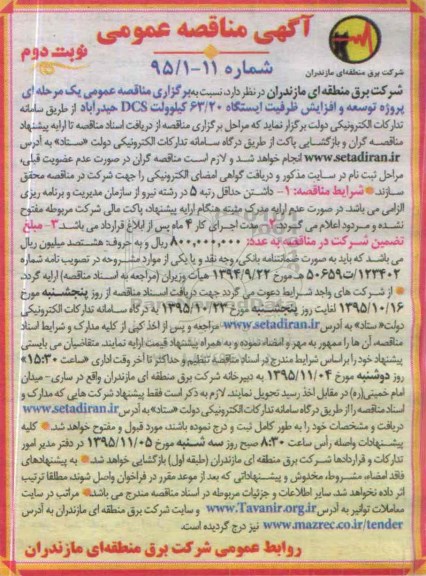 آگهی مناقصه عمومی
نوبت دوم
شماره ۱۱-۹۵/۱
شرکت برق منطقه‌ای مازندران
شرکت برق منطقه ای مازندران در نظر دارد، نسبت به برگزاری مناقصه عمومی یک مرحله ای
پروژه توسعه و افزایش ظرفیت ایستگاه ۶۳/۲۰ کیلوولت DCS حیدرآباد از طریق سامانه
تدارکات الکترونیکی دولت برگزار نماید که مراحل برگزاری مناقصه از دریافت اسناد مناقصه تا ارایه پیشنهاد
مناقصه گران و بازگشایی پاکت از طریق درگاه سامانه تدارکات الکترونیکی دولت «ستاد» به آدرس
www.setadiran.ir انجام خواهد شد و لازم است مناقصه گران در صورت عدم عضویت قبلی،
مراحل ثبت نام در سایت مذکور و دریافت گواهی امضای الکترونیکی را جهت شرکت در مناقصه محقق
سازند. شرایط مناقصه: ۱- داشتن حداقل رتبه ۵ در رشته نیرو از سازمان مدیریت و برنامه ریزی
الزامی می باشد. در صورت عدم ارایه مدرک مثبته هنگام ارایه پیشنهاد، پاکت مالی شرکت مربوطه مفتوح
نشده و مردود اعلام می گردد. ۲- مدت اجرای کار ۴ ماه پس از ابلاغ قرارداد می باشد. ۳- مبلغ
تضمین شرکت در مناقصه به عدد: ۸۰۰,۰۰۰,۰۰۰ ریال و به حروف: هشتصد میلیون ریال
می باشد که باید به صورت ضمانتنامه بانکی، وجه نقد و یا یکی از موارد مشروحه در تصویب نامه شماره
۱۲۳۴۰۲/ت۵۰۶۵۹ه‍ مورخ ۱۳۹۴/۹/۲۲ هیأت وزیران (مراجعه به اسناد مناقصه) ارایه گردد.
از شرکت های واجد شرایط دعوت می گردد جهت دریافت اسناد مناقصه از روز پنجشنبه مورخ
۱۳۹۵/۱۰/۱۶ لغایت روز پنجشنبه مورخ ۱۳۹۵/۱۰/۲۳ به درگاه سامانه تدارکات الکترونیکی
دولت «ستاد» به آدرس www.setadiran.ir مراجعه و پس از اخذ کپی از کلیه مدارک و شرایط اسناد
مناقصه آن ها را ممهور به مهر و امضاء نموده و به همراه پیشنهاد قیمت ارایه نمایند. متقاضیان می بایستی
پیشنهاد خود را بر اساس شرایط مندرج در اسناد مناقصه تنظیم و حداکثر تا آخر وقت اداری «ساعت ۱۵:۳۰»
روز دوشنبه مورخ ۱۳۹۵/۱۱/۰۴ به دبیرخانه شرکت برق منطقه ای مازندران واقع در ساری- میدان
امام خمینی(ره) در مقابل اخذ رسید تحویل نمایند. لازم به ذکر است فقط پیشنهاد شرکت هایی که مدارک و
اسناد مناقصه را از طریق درگاه سامانه تدارکات الکترونیکی دولت «ستاد» به آدرس www.setadiran.ir
دریافت و مشخصات خود را به طور کامل ثبت و درج نموده باشند، مورد قبول و مفتوح خواهد شد. کلیه
پیشنهادات واصله رأس ساعت ۸:۳۰ صبح روز سه شنبه مورخ ۱۳۹۵/۱۱/۰۵ در دفتر مدیر امور
تدارکات و قراردادها شرکت برق منطقه ای مازندران (طبقه اول) بازگشایی خواهد شد. به پیشنهادهای
فاقد امضاء، مشروط، مخدوش و پیشنهاداتی که بعد از موعد مقرر در فراخوان واصل شوند، مطلقا ترتیب
اثر داده نخواهد شد. سایر اطلاعات و جزئیات مربوطه در اسناد مناقصه مندرج می باشد. مراتب در سایت
معاملات توانیر به آدرس www.Tavanir.org.ir و سایت شرکت برق منطقه ای مازندران به آدرس
www.mazrec.co.ir/tender نیز درج گردیده است.
روابط عمومی شرکت برق منطقه‌ای مازندران